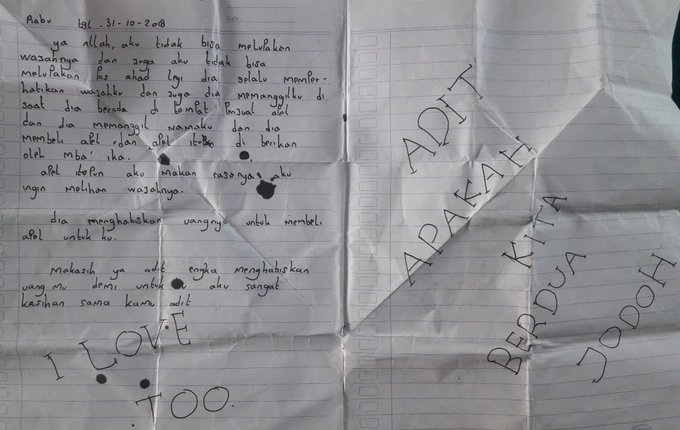 Rabu tgl .31-10-2018
ya Allah, aku tidak bisa melupakan
wajahnya dan juga aku tidak bisa
melupakan pas ahad legi dia selalu memper-
hatikan wajahku dan juga dia memanggilku di
saat dia berada di tempat penjual apel
dan dia memanggil namaku dan dia
membeli apel dan apel itupun di berikan
oleh mba' ika.
apel itopun aku makan rasanya aku
ingin melihan wajahnya.
dia menghabiskan uangnya untuk membeli
apel untuk ku.
Makasih ya adit engka menghabiskan
uang mu demi untuk aku sangat
kasihan sama kamu adit
I LOVE
TOO.
ADIT
APAKAH
KITA
BERDUA
JODOH